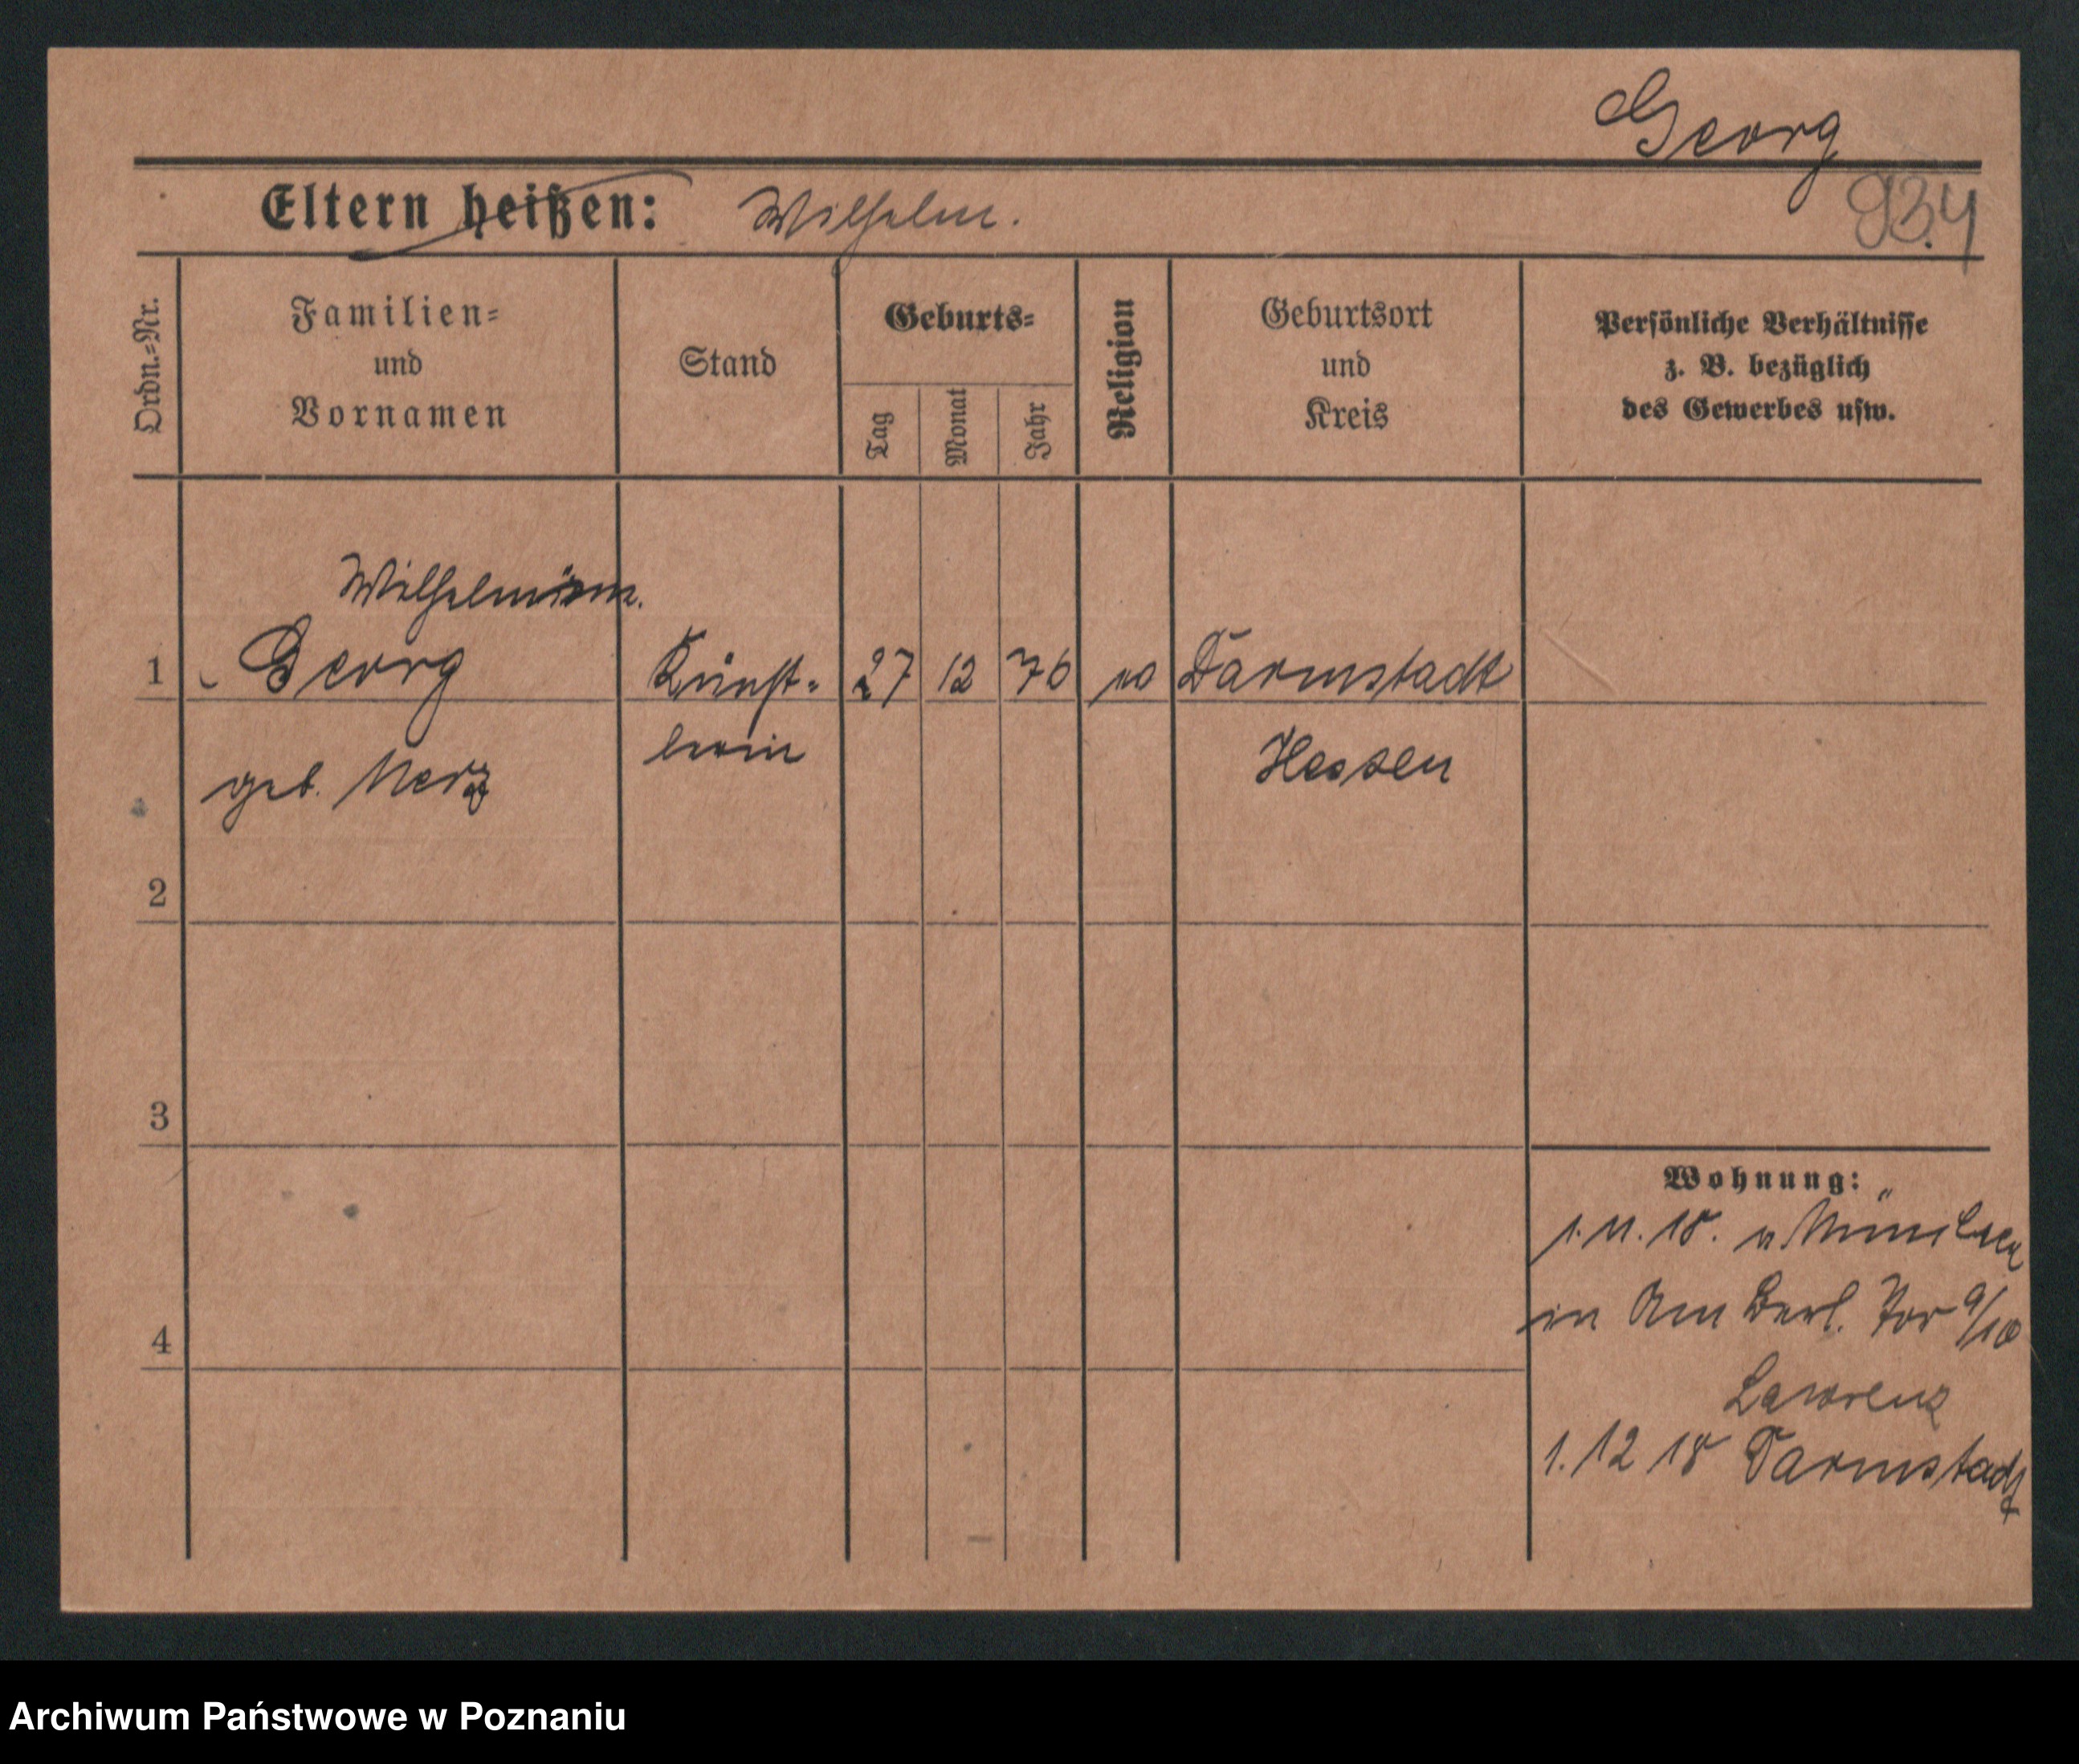 Georg
Eltern heißen: Wilhelm.
93.4
Ordn.=Nr.
Familien=
und
Vornamen
Stand
Geburts=
Tag
Monat
Jahr
Religion
Geburtsort
und
Kreis
Persönliche Verhältnisse
z. B. bezüglich
des Gewerbes usw.
Wilhelmine.
1 Georg Künst= 27 12 76 Darmstadt
geb. Merz lerin Hessen
2
3
4
Wohnung:
1. 11. 18. v. München
in Am Berl. Tor 9/10
Lawrenz
1. 12 18 Darmstadt
Archiwum Państwowe w Poznaniu